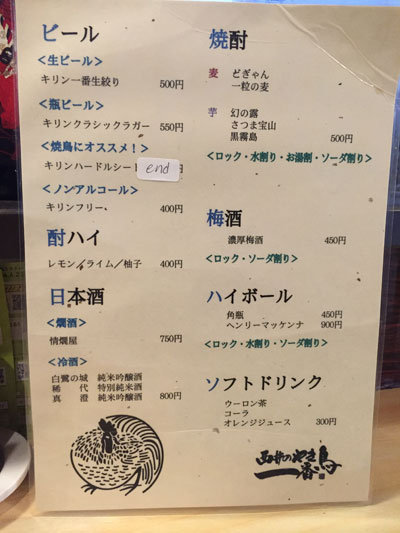 ビール
<生ビール>
キリン一番生絞り 500円
<瓶ビール>
キリンクラシックラガー 550円
<焼鳥にオススメ!>
キリンハードルシード end 円
<ノンアルコール>
キリンフリー、 400円
酎ハイ
レモン/ライム/柚子 400円
日本酒
<燗酒>
情燗屋 750円
<冷酒>
白鷺の城 純米吟醸酒
稀代 特別純米酒
真澄 純米吟醸酒 800円
焼酎
麦 どぎゃん
一粒の麦
芋 幻の露
さつま宝山
黒霧島 500円
<ロック・水割り・お湯割・ソーダ割り>
梅酒
濃厚梅酒 450円
<ロック・ソーダ割り>
ハイボール
角瓶 450円
ヘンリーマッケンナ 900円
<ロック・水割り・ソーダ割り>
ソフトドリンク
ウーロン茶
コーラ
オレンジジュース 300円
西井のやき鳥
一番